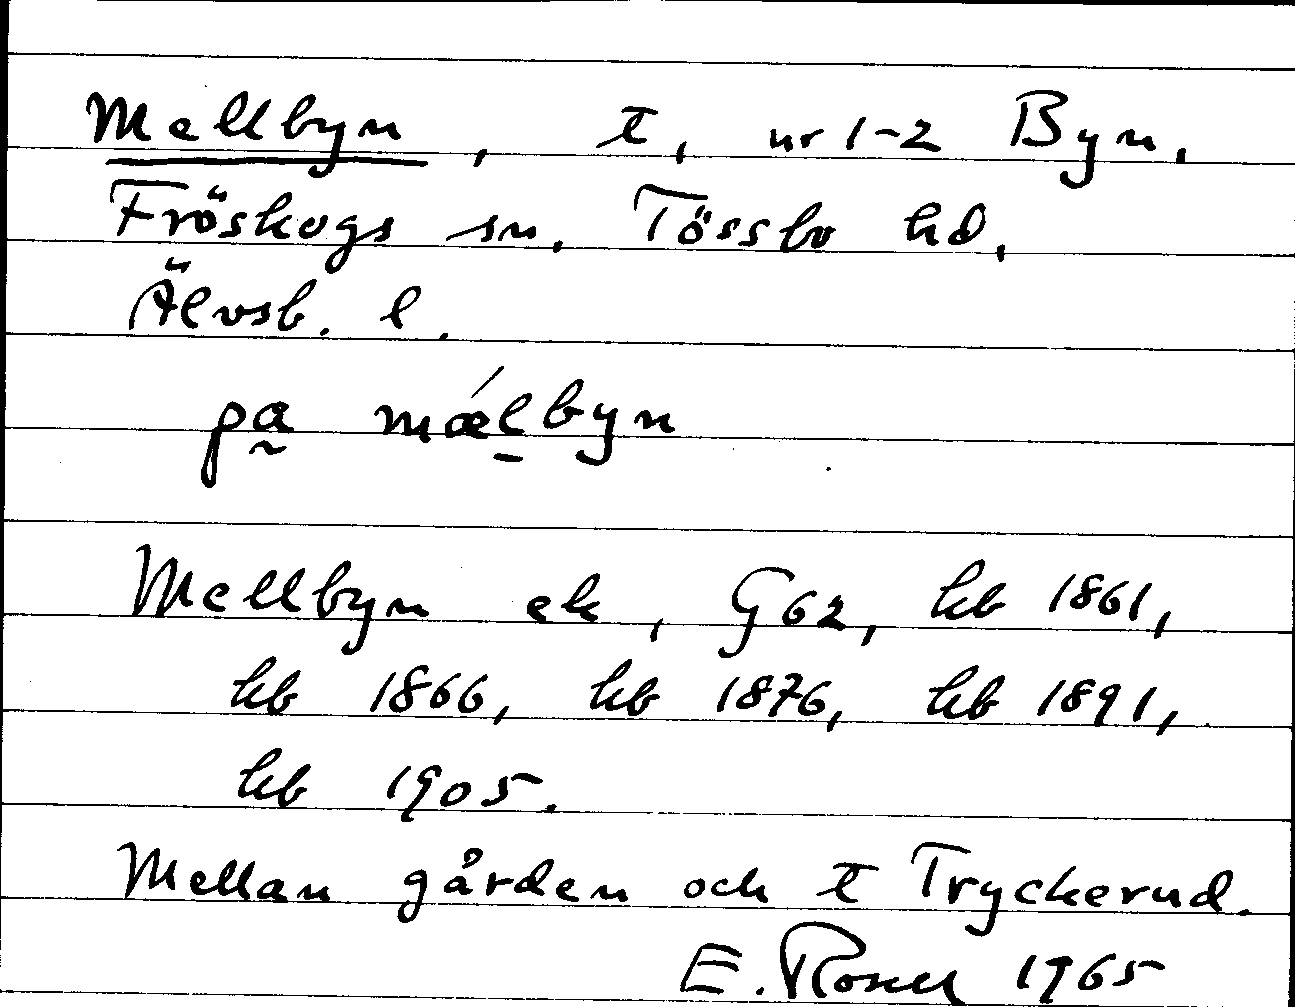 Mellbyn, t, nr 1-2 Byn,
Fröskogs sn. Tössbo hd,
Älvsb. l.
pa mǽlbyn
Mellbyn ek, G62, hb 1861,
hb 1866, hb 1876, hb 1891,
hb 1905.
Mellan gården och t Tryckerud.
E. Rosell 1965